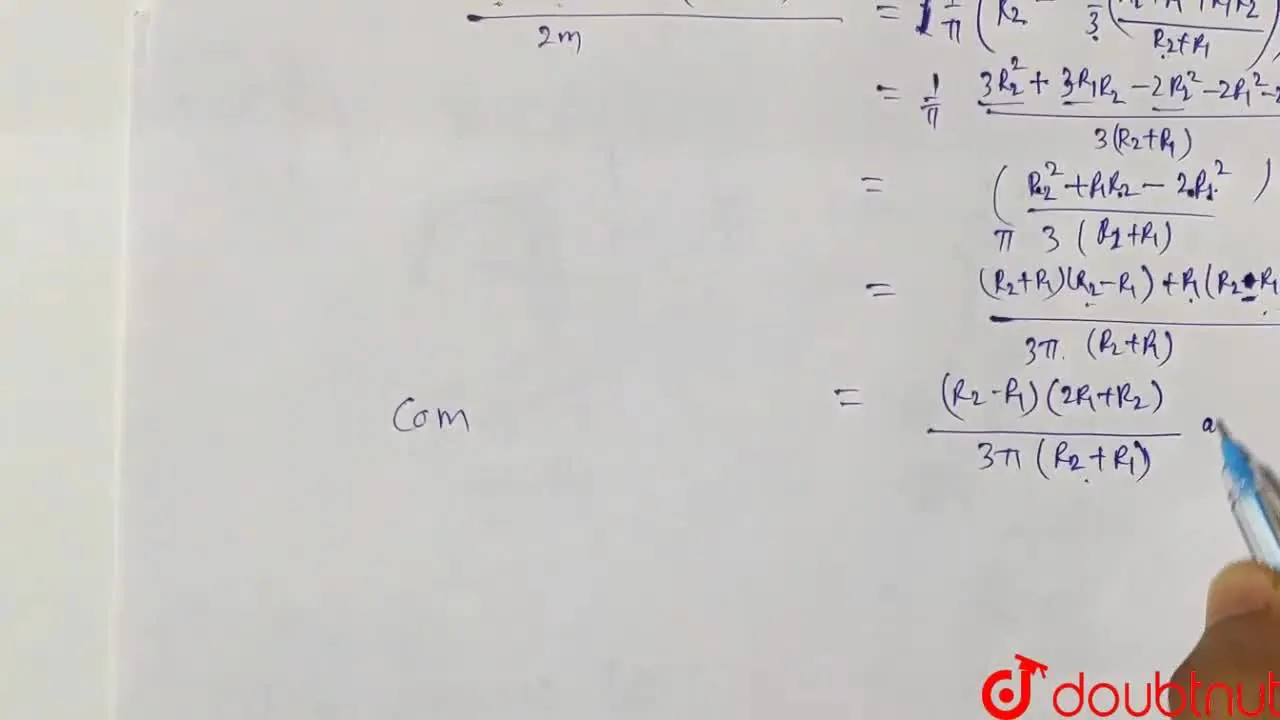 2m
= 1/π (R2 - 1/3 (
R2+R1
= 1/π 3R2² + 3R1R2 - 2R2² - 2R1² - 2
3(R2+R1)
= ( R2² + R1R2 - 2R1² )
π 3 (R2+R1)
= (R2+R1)(R2-R1) + R1(R2-R1
3π. (R2+R1)
Com
= (R2-R1)(2R1+R2) a
3π(R2+R1)
doubtnut